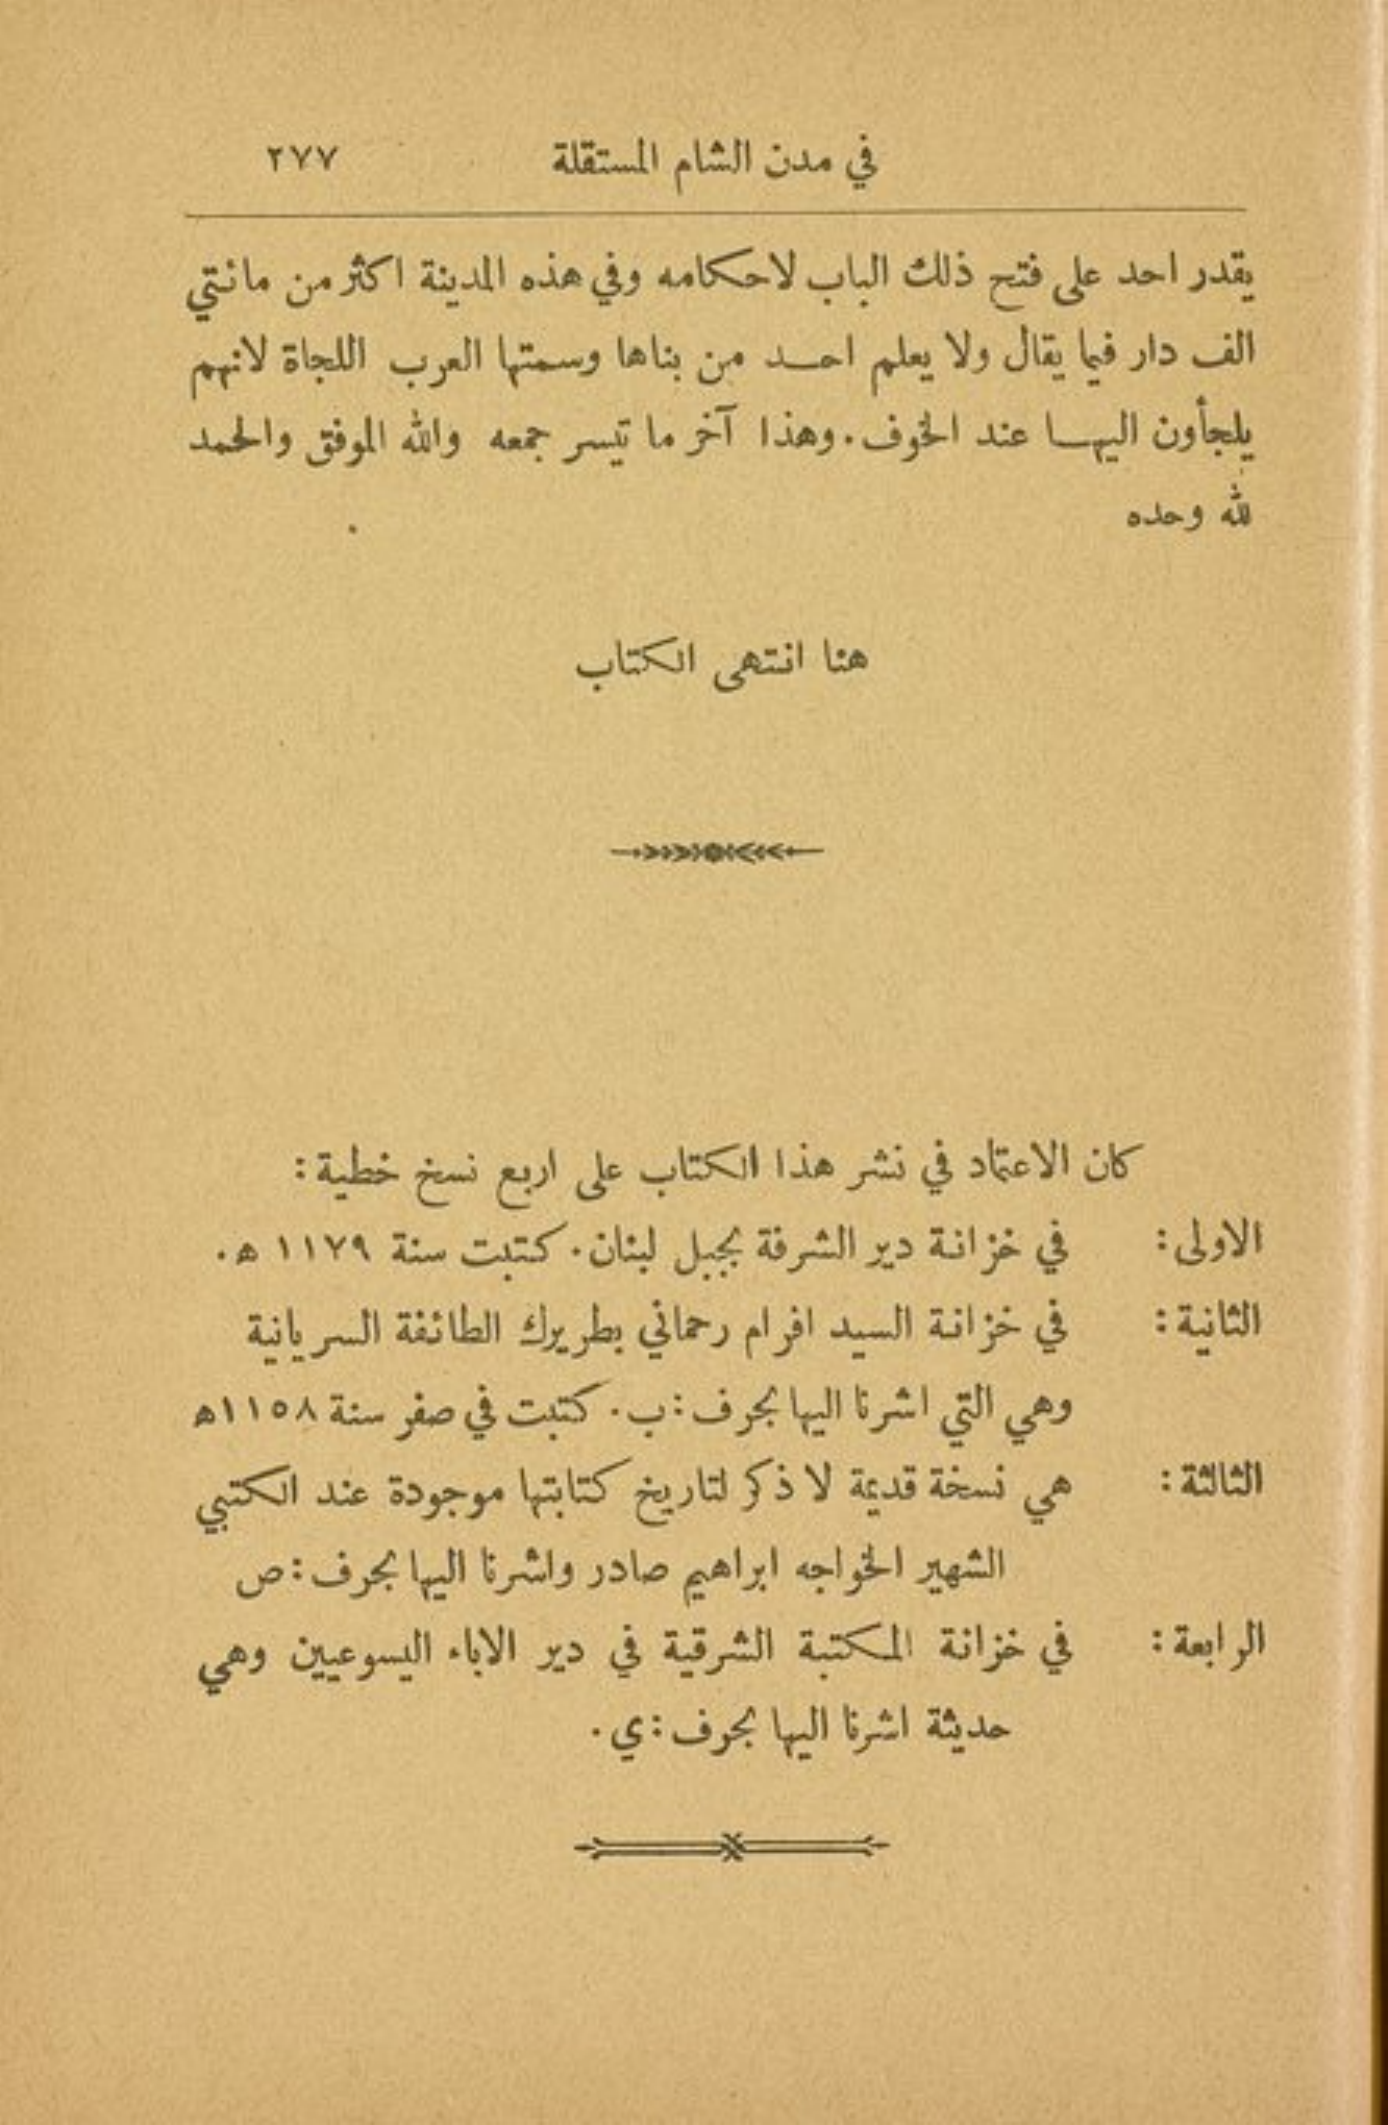 في مدن الشام المستقلة ٢٧٧
يقدر احد على فتح ذلك الباب لاحكامه وفي هذه المدينة اكثر من مائتي
الف دار فيما يقال ولا يعلم احد من بناها وسمتها العرب اللجاة لانهم
يلجأون اليها عند الخوف. وهذا آخر ما تيسر جمعه والله الموفق والحمد
لله وحده
هنا انتهى الكتاب
كان الاعتماد في نشر هذا الكتاب على اربع نسخ خطية:
الاولى: في خزانة دير الشرفة بجبل لبنان. كتبت سنة ١١٧٩ ه.
الثانية: في خزانة السيد افرام رحماني بطريرك الطائفة السريانية
وهي التي اشرنا اليها بحرف: ب. كتبت في صفر سنة ١١٥٨ه
الثالثة: هي نسخة قديمة لا ذكر لتاريخ كتابتها موجودة عند الكتبي
الشهير الخواجه ابراهيم صادر واشرنا اليها بحرف: ص
الرابعة: في خزانة المكتبة الشرقية في دير الاباء اليسوعيين وهي
حديثة اشرنا اليها بحرف: ي.